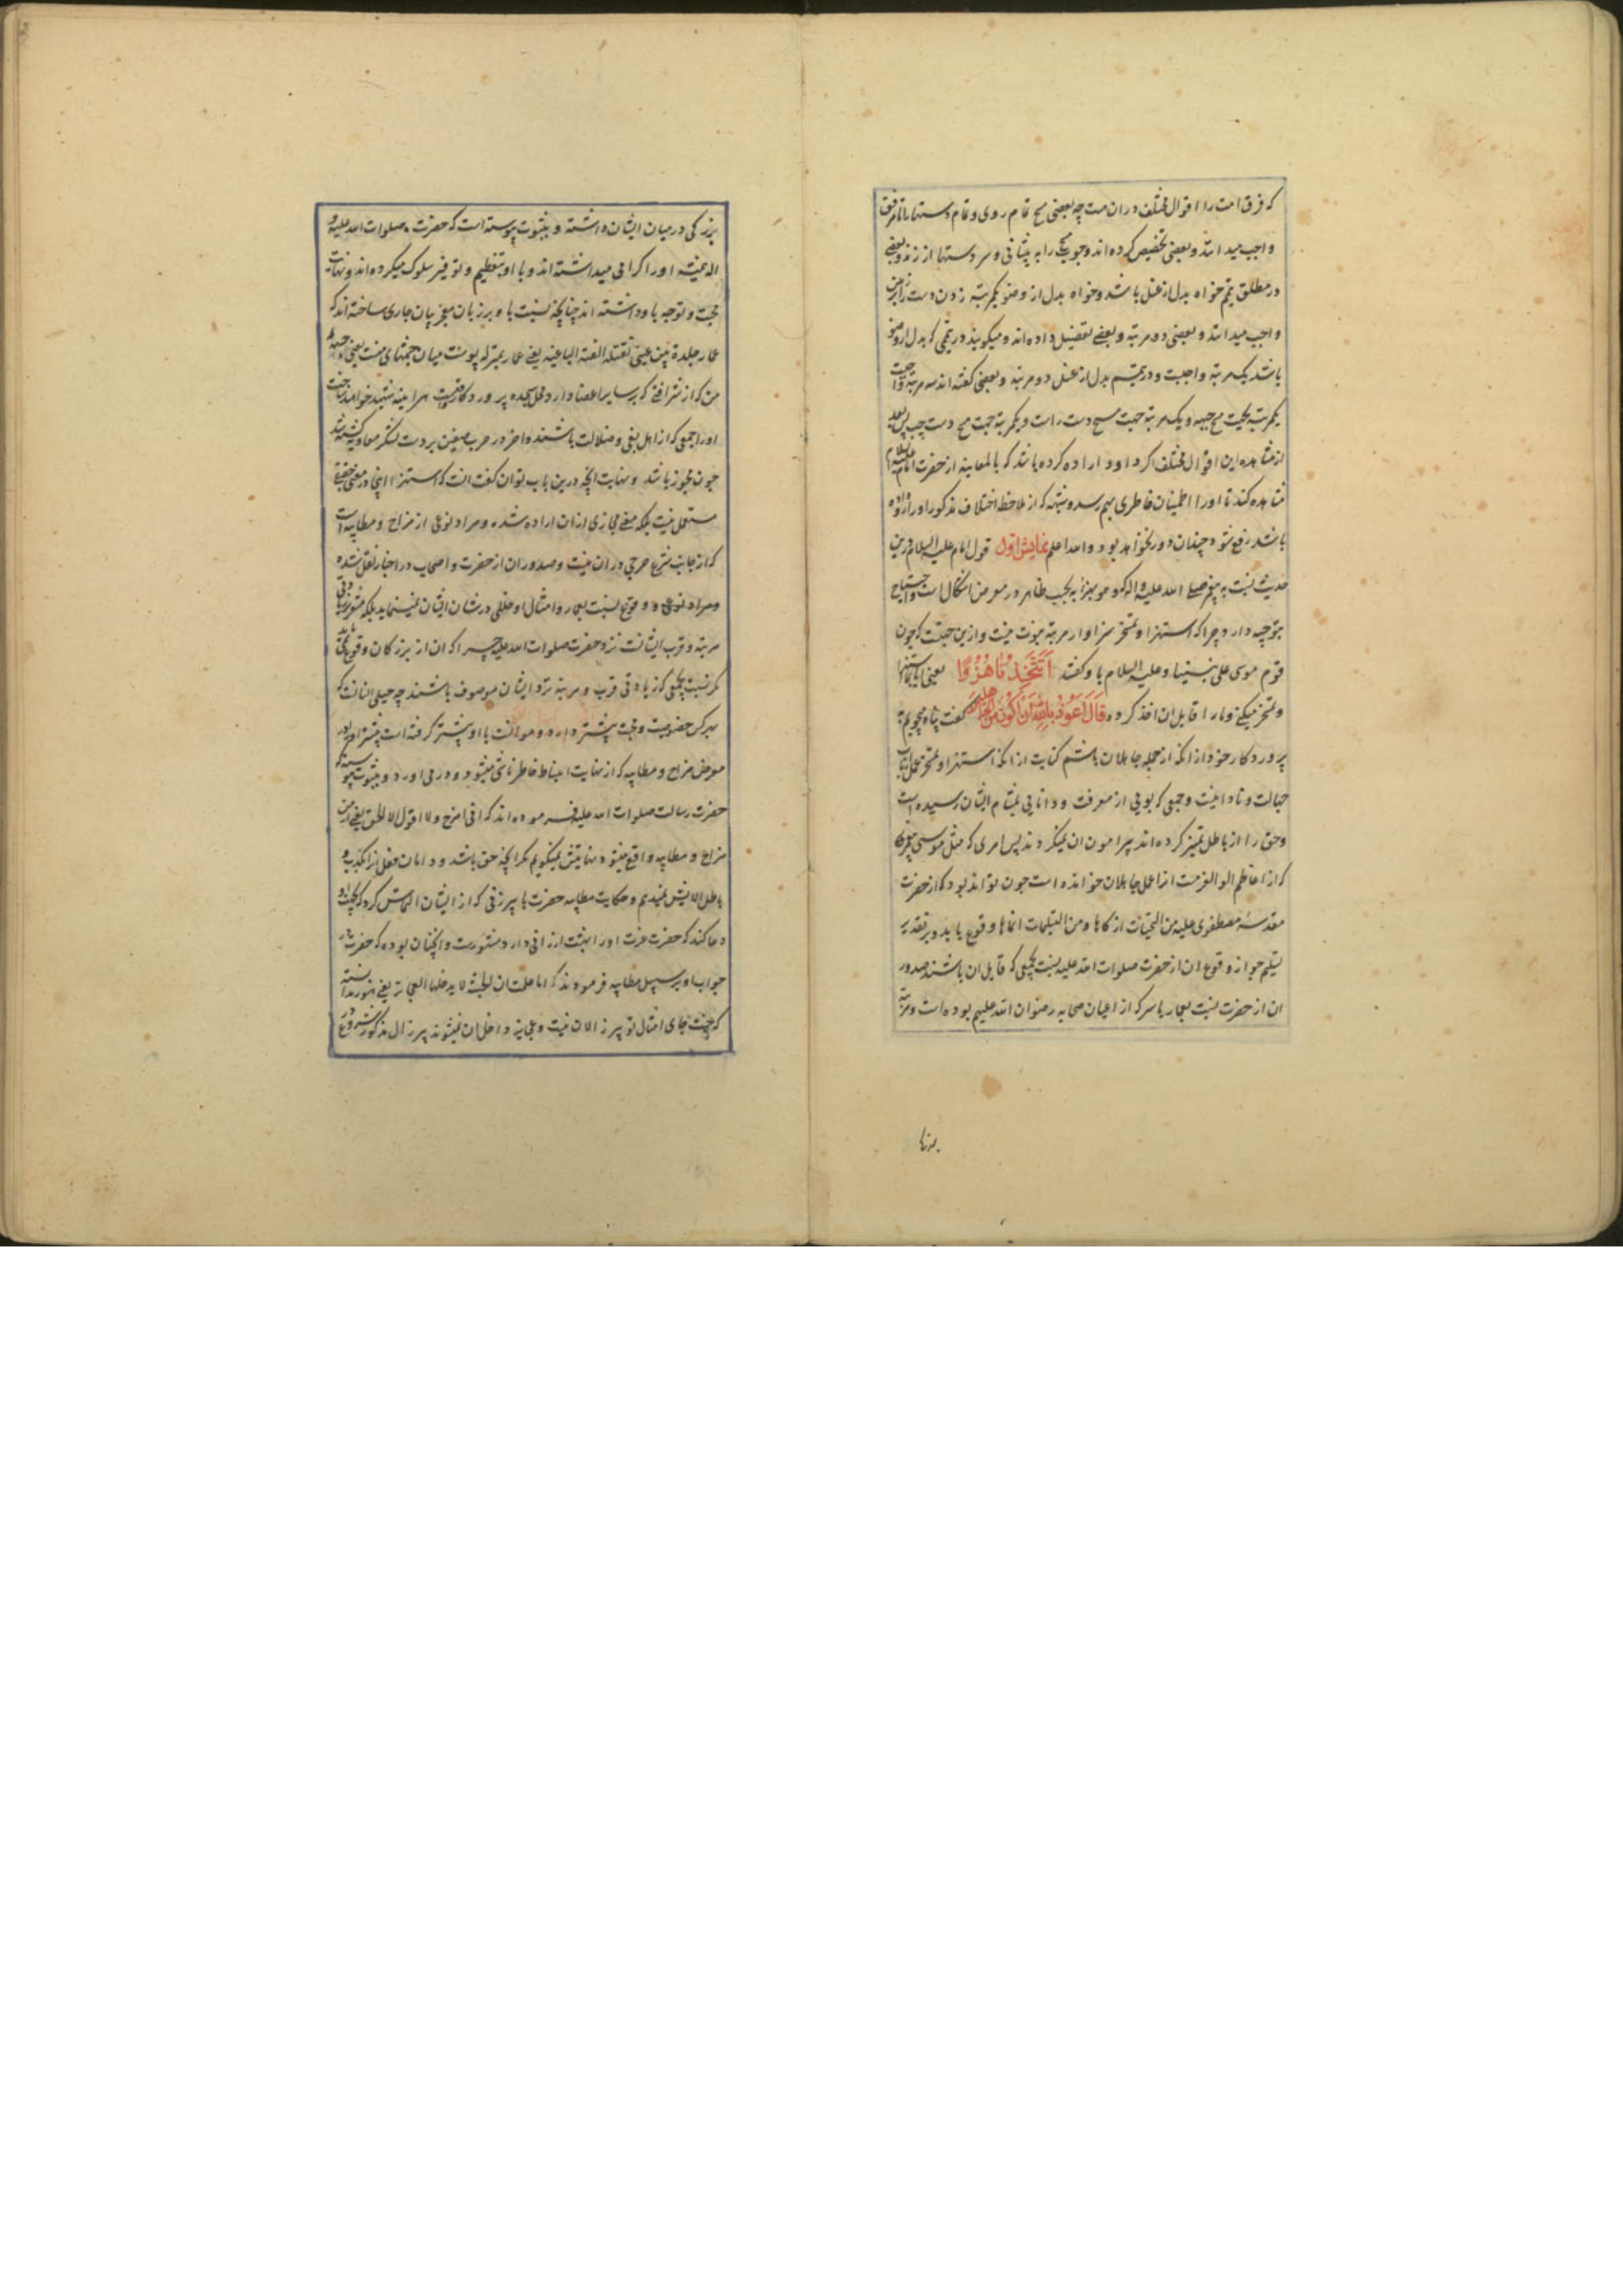 که فرق امت را اقوال مختلف دران هست چه بعضی مسح تمام روی و تمام دستها را تا مرفق
واجب میدانند و بعضی تخصیص کرده اند وجوب مسح را به پیشانی و سر دستها از زند و بعضی
در مطلق تیمم خواه بدل از غسل باشد و خواه بدل از وضو یکمرتبه زدن دست را بر زمین
واجب میدانند و بعضی دو مرتبه و بعضی تفصیل داده اند و میگویند در تیممی که بدل از وضو
باشد یک مرتبه واجبست و در تیمم بدل از غسل دو مرتبه و بعضی گفته اند سه مرتبه واجبست
یکمرتبه بجهت مسح جبهه و یک مرتبه جهت مسح دست راست و یکمرتبه جهت مسح دست چپ پس بعد
از مشاهده این اقوال مختلف اگر داوود اراده کرده باشد که بالمعاینه از حضرت امام علیه السلام
مشاهده کند تا او را اطمینان خاطری بهم رسد و شبهه که از ملاحظه اختلاف مذکور او را رو داده
باشد رفع شود چندان دور نخواهد بود والله اعلم نمایش اول قول امام علیه السلام درین
حدیث نسبت به پیغمبر صلی الله علیه واله که وهو یهزأ به بحسب ظاهر در معرض اشکال است و احتیاج
بتوجیه دارد چرا که استهزا و تمسخر سزاوار مرتبه نبوت نیست و ازین جهتست که چون
قوم موسی علی نبینا و علیه السلام باو گفتند اَتَتَّخِذُنَا هُزُوًا یعنی ایا بما استهزا
و تمسخر میکنی و ما را قابل ان اخذ کرده قَالَ اَعُوذُ بِاللّٰهِ اَنْ اَکُونَ مِنَ الْجَاهِلِینَ گفت پناه میجویم به
پروردگار خود از انکه از جمله جاهلان باشم کنایت از انکه استهزا و تمسخر عمل ارباب
جهالت و نادانیست و جمعی که بویی از معرفت و دانایی بمشام ایشان رسیده است
وحق را از باطل تمییز کرده اند پیرامون ان نمیگردند پس امری که مثل موسی پیغمبری
که از اعاظم اولو العزمست انرا عمل جاهلان خوانده است چون تواند بود که از حضرت
مقدسه مصطفوی علیه من التحیات ازکاها و من التسلیمات انماها وقوع یابد و بر تقدیر
تسلیم جواز وقوع ان از حضرت صلوات الله علیه نسبت بجمعی که قابل ان باشند صدور
ان از حضرت نسبت بعمار یاسر که از اعیان صحابه رضوان الله علیهم بوده است و مرتبه
بزرگی در میان ایشان داشته و بثبوت پیوسته است که حضرت صلوات الله علیه و
اله همیشه او را گرامی میداشته اند و با او بتعظیم و توقیر سلوک میکرده اند و نهایت
محبت و توجه باو داشته اند چنانچه نسبت باو بر زبان معجز بیان جاری ساخته اند که
عمار جلدة بین عینی تقتله الفئة الباغیة یعنی عمار بمنزله پوست میان چشمهای منست یعنی جبهه
من که از شرافتی که بر سایر اعضا دارد محل سجده پروردگارست هر اینه شهید خواهند ساخت
او را جمعی که از اهل بغی و ضلالت باشند و اخر در حرب صفین بر دست لشکر معاویه کشته شد
چون مجوز باشد و نهایت انچه درین باب توان گفت انست که استهزا اینجا در معنی حقیقی
مستعمل نیست بلکه معنی مجازی از ان اراده شده و مراد نوعی از مزاح و مطایبه است
که از جانب شرع حرجی در ان نیست و صدور ان از حضرت و اصحاب در اخبار نقل شده
و مراد نوعی و وقوع نسبت بعمار و امثال او خللی در شان ایشان نمینماید بلکه مشعر بزیادتی
مرتبه و قرب ایشانست نزد حضرت صلوات الله علیه چرا که ان از بزرگان وقوع نمی یابد
مگر نسبت بجمعی که زیادتی قرب و مرتبه نزد ایشان موصوف باشند چه جبلی انسانست که
بهر کس خصوصیت و محبت بیشتر دارد و موانست با او بیشتر گرفته است بیشتر او را در
معرض مزاح و مطایبه که از نهایت انبساط خاطر ناشی میشود در می اورد و بثبوت پیوسته که
حضرت رسالت صلوات الله علیه فرموده اند که انی امزح ولا اقول الا الحق یعنی از من
مزاح و مطایبه واقع میشود نهایتش نمیگویم مگر انچه حق باشد و دامان فعل انرا بکذب و
باطل الایش نمیدهم و حکایت مطایبه حضرت با پیرزنی که از ایشان التماس کرد که بجهت او
دعا کند که حضرت عزت او را بهشت ارزانی دارد مشهورست و انچنان بوده که حضرت در
جواب او بر سبیل مطایبه فرمودند که اما علمت ان الجنة لا یدخلها العجایز یعنی هنوز ندانسته
که جنت جای امثال تو پیر زالان نیست و عجایز داخل ان نمیشوند پیر زال مذکور شروع